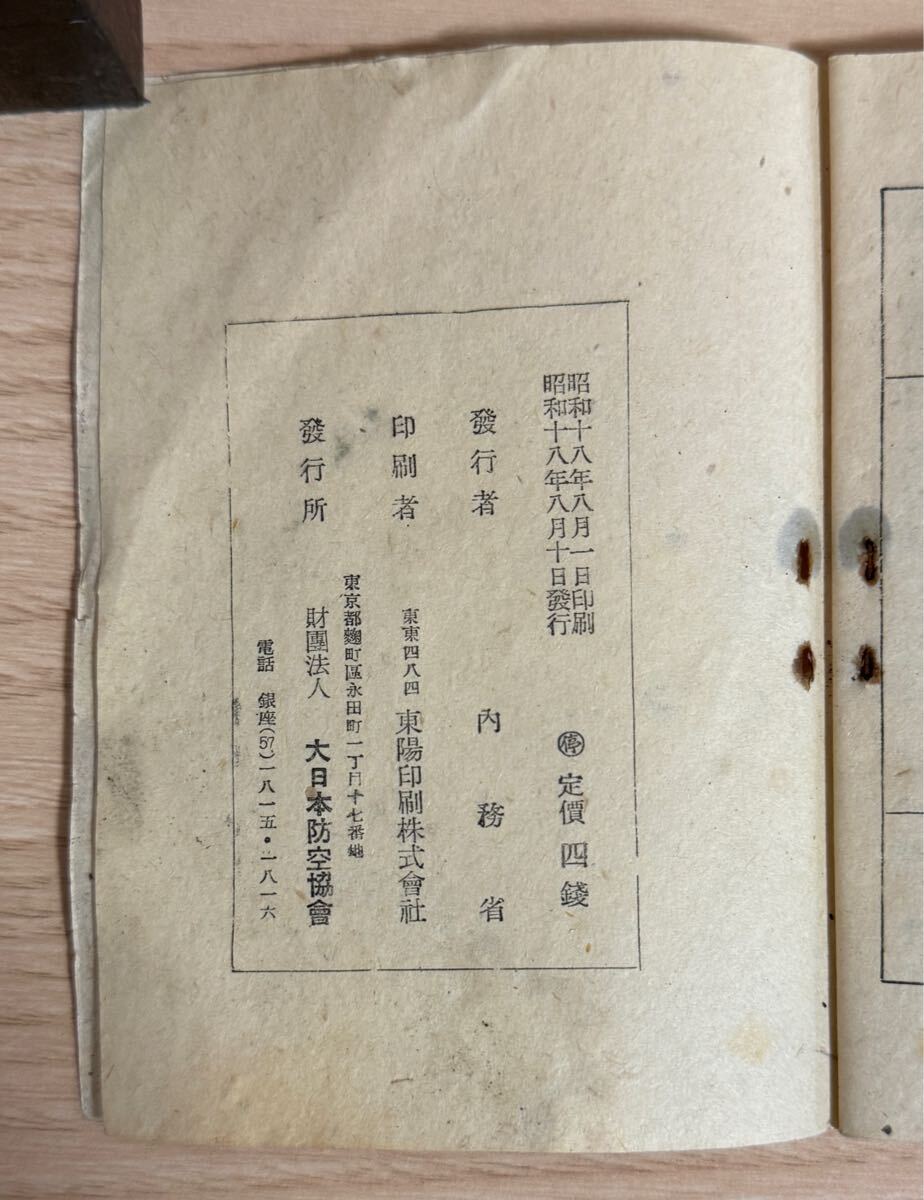 昭和十八年八月一日印刷
昭和十八年八月十日發行
㊡ 定價 四錢
發行者 內務省
印刷者 東東四八四 東陽印刷株式會社
東京都麴町區永田町一丁目十七番地
發行所 財團法人 大日本防空協會
電話 銀座(57)一八一五・一八一六